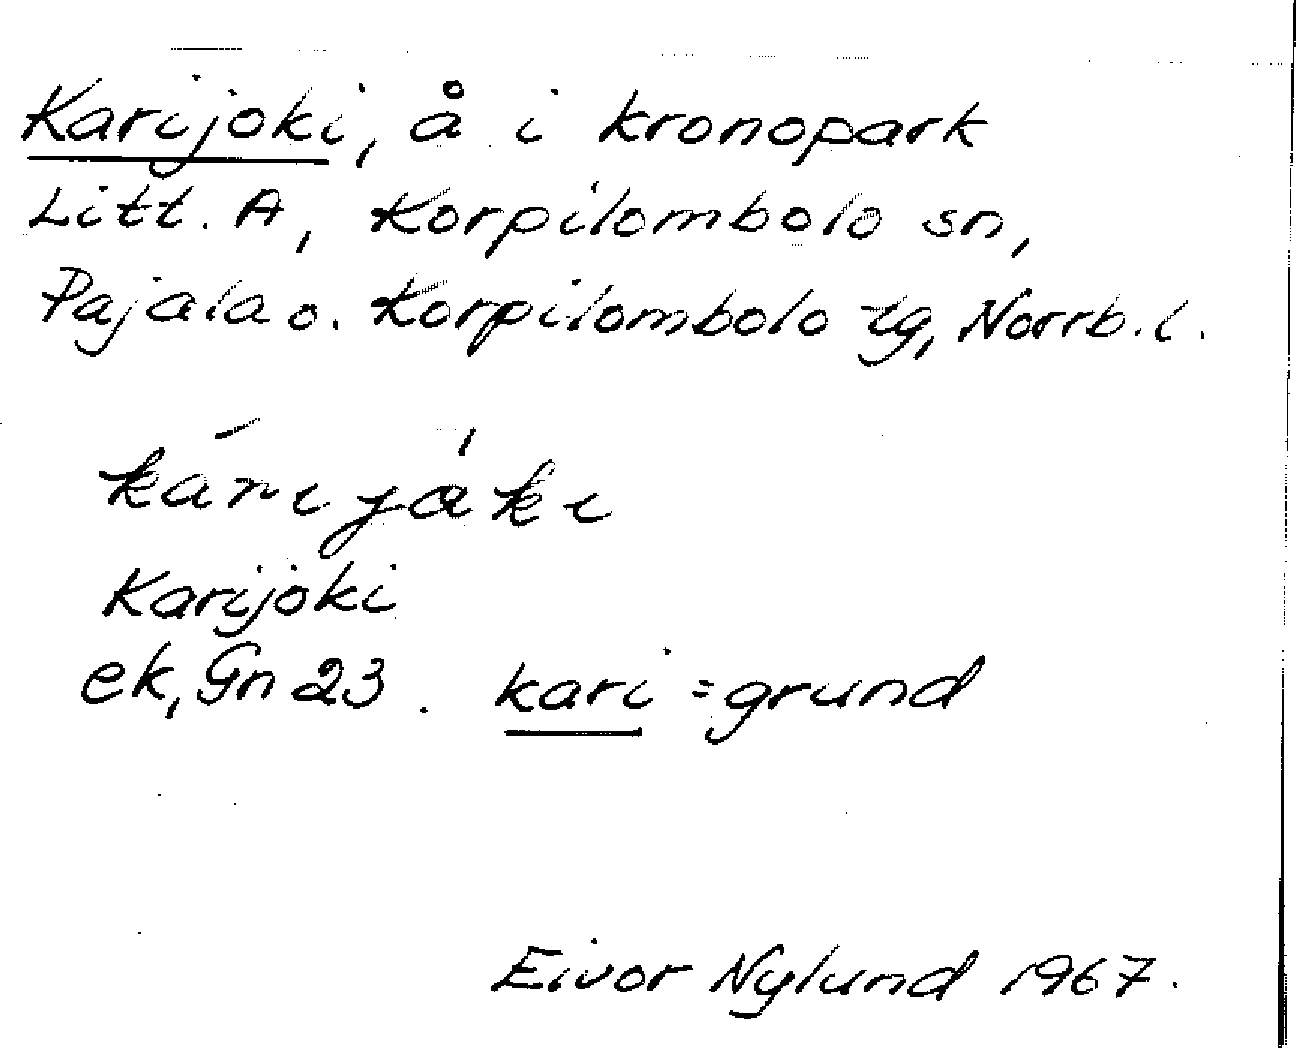 Karijoki, å i kronopark
Litt. A, Korpilombolo sn,
Pajala o. Korpilombolo tg, Norrb. l.
kárijåkı
Karijoki
ek, Gn 23. kari = grund
Eivor Nylund 1967.